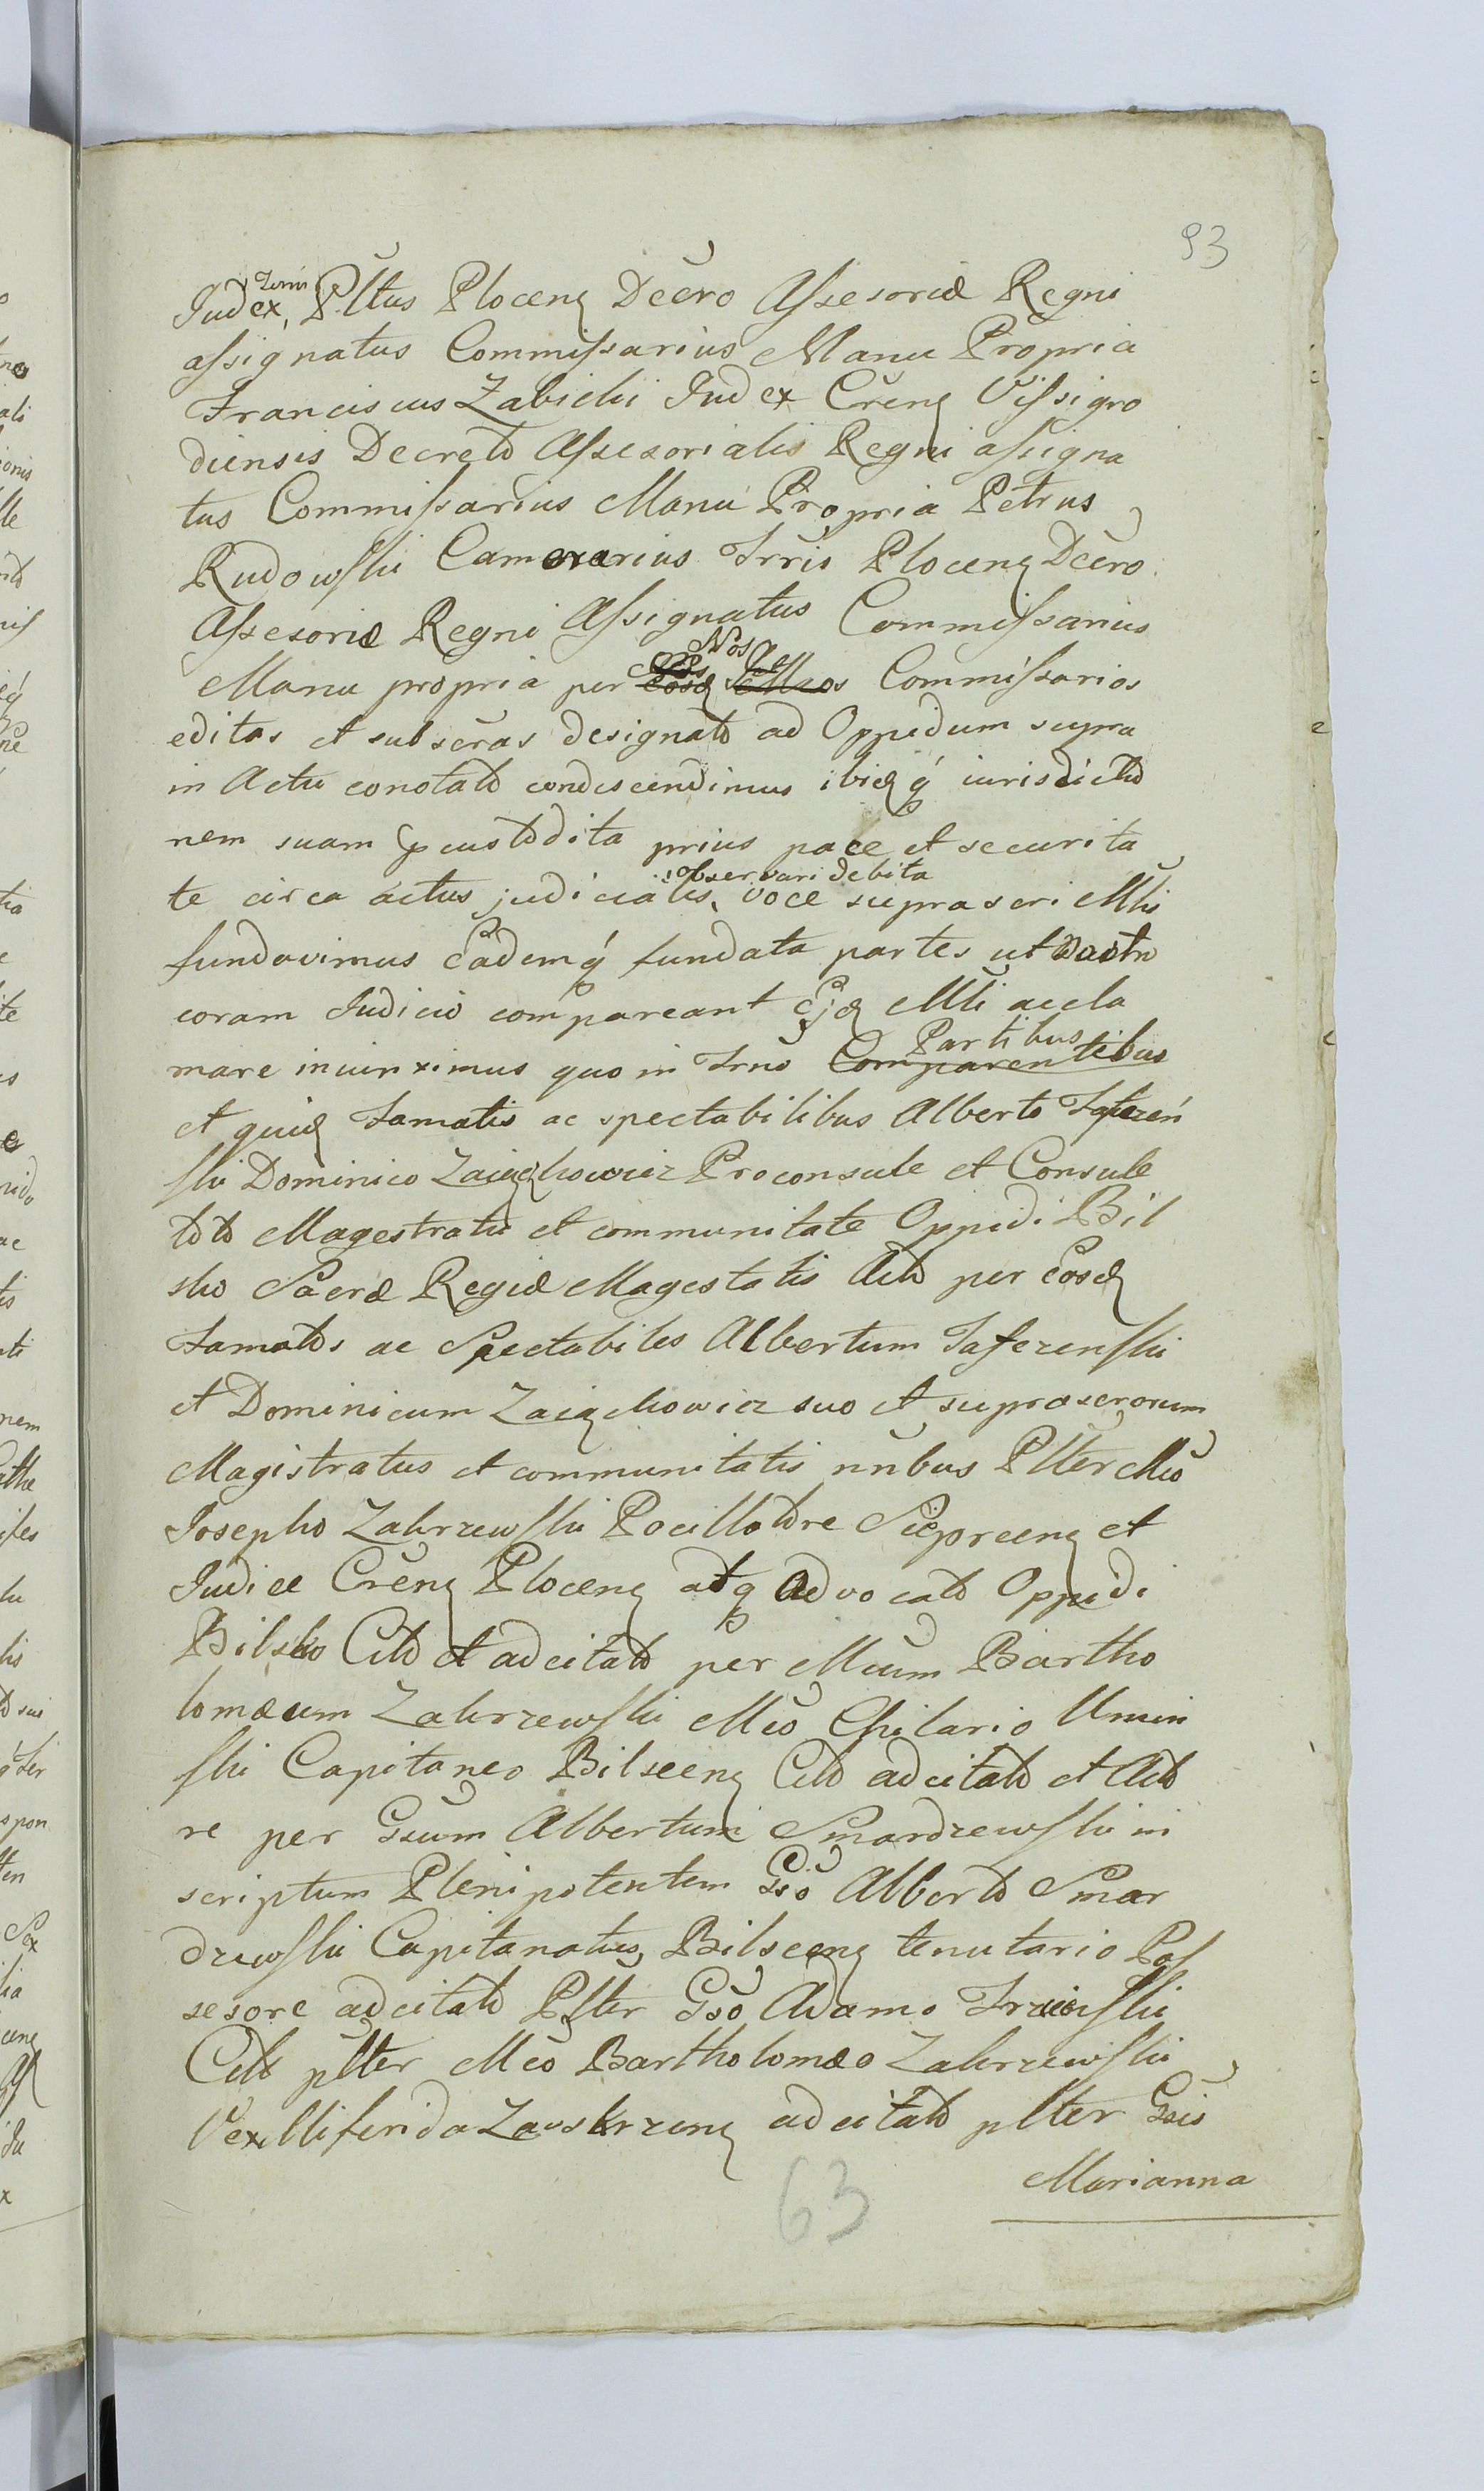 93
Judex, Zemi Pltus Plocen Decro Assesoriæ Regni
assignatus Commissarius Manu Propria
Franciscus Zabicki Judex Cren Vissigro
diensis Decreto Assesorialis Regni assigna
tus Commissarius Manu Propria Petrus
Rudowski Camerarius Trris Plocen Decro
Assesoriæ Regni Assignatus Commissarius
Manu propria per Nos Commissarios
editas et subscras designato ad Oppidum supra
in Actu conotato condescendimus ibidq iurisdictio
nem suam custodita prius pace et securita
te circa actus judiciales, observari debita voce suprascri Mlis
fundavimus eademq fundata partes ut
coram Judicio compareant Ejd Mli accla
mare iniunximus quo in Trno Comparentibus Partibus
et quid Famatis ac spectabilibus Alberto
ski Dominico Proconsule et Consule
toto Magestratu et communitate Oppidi Bil
sko Sacræ Regiæ Magestatis Acto per eosd
Famatos ac Spectabiles Albertum Taferenski
et Dominicum Zaiączkowicz suo et suprascrorum
Magistratus et communitatis nnbus Plter Mco
Josepho Zakrzewski Pocillatore Sieprcen et
Judice Cren Plocen atq Advocato Oppidi
Bilsko Cito et adcitato per Mcum Bartho
lomæum Zakrzewski Mco Hilario Umin
ski Capitaneo Bilscen Cito adcitato et Acto
re per Gsum Albertum Smardzewski in
scriptum Plenipotentem Gso Alberto Smar
dzewski Capitanatus Bilscen tenutario Pos
sesore adcitato Plter Gso Adamo
Cito plter Mco Bartholomæo Zakrzewski
Vexilliferida Zawskrzen adcitato plter Gsis
Marianna
63